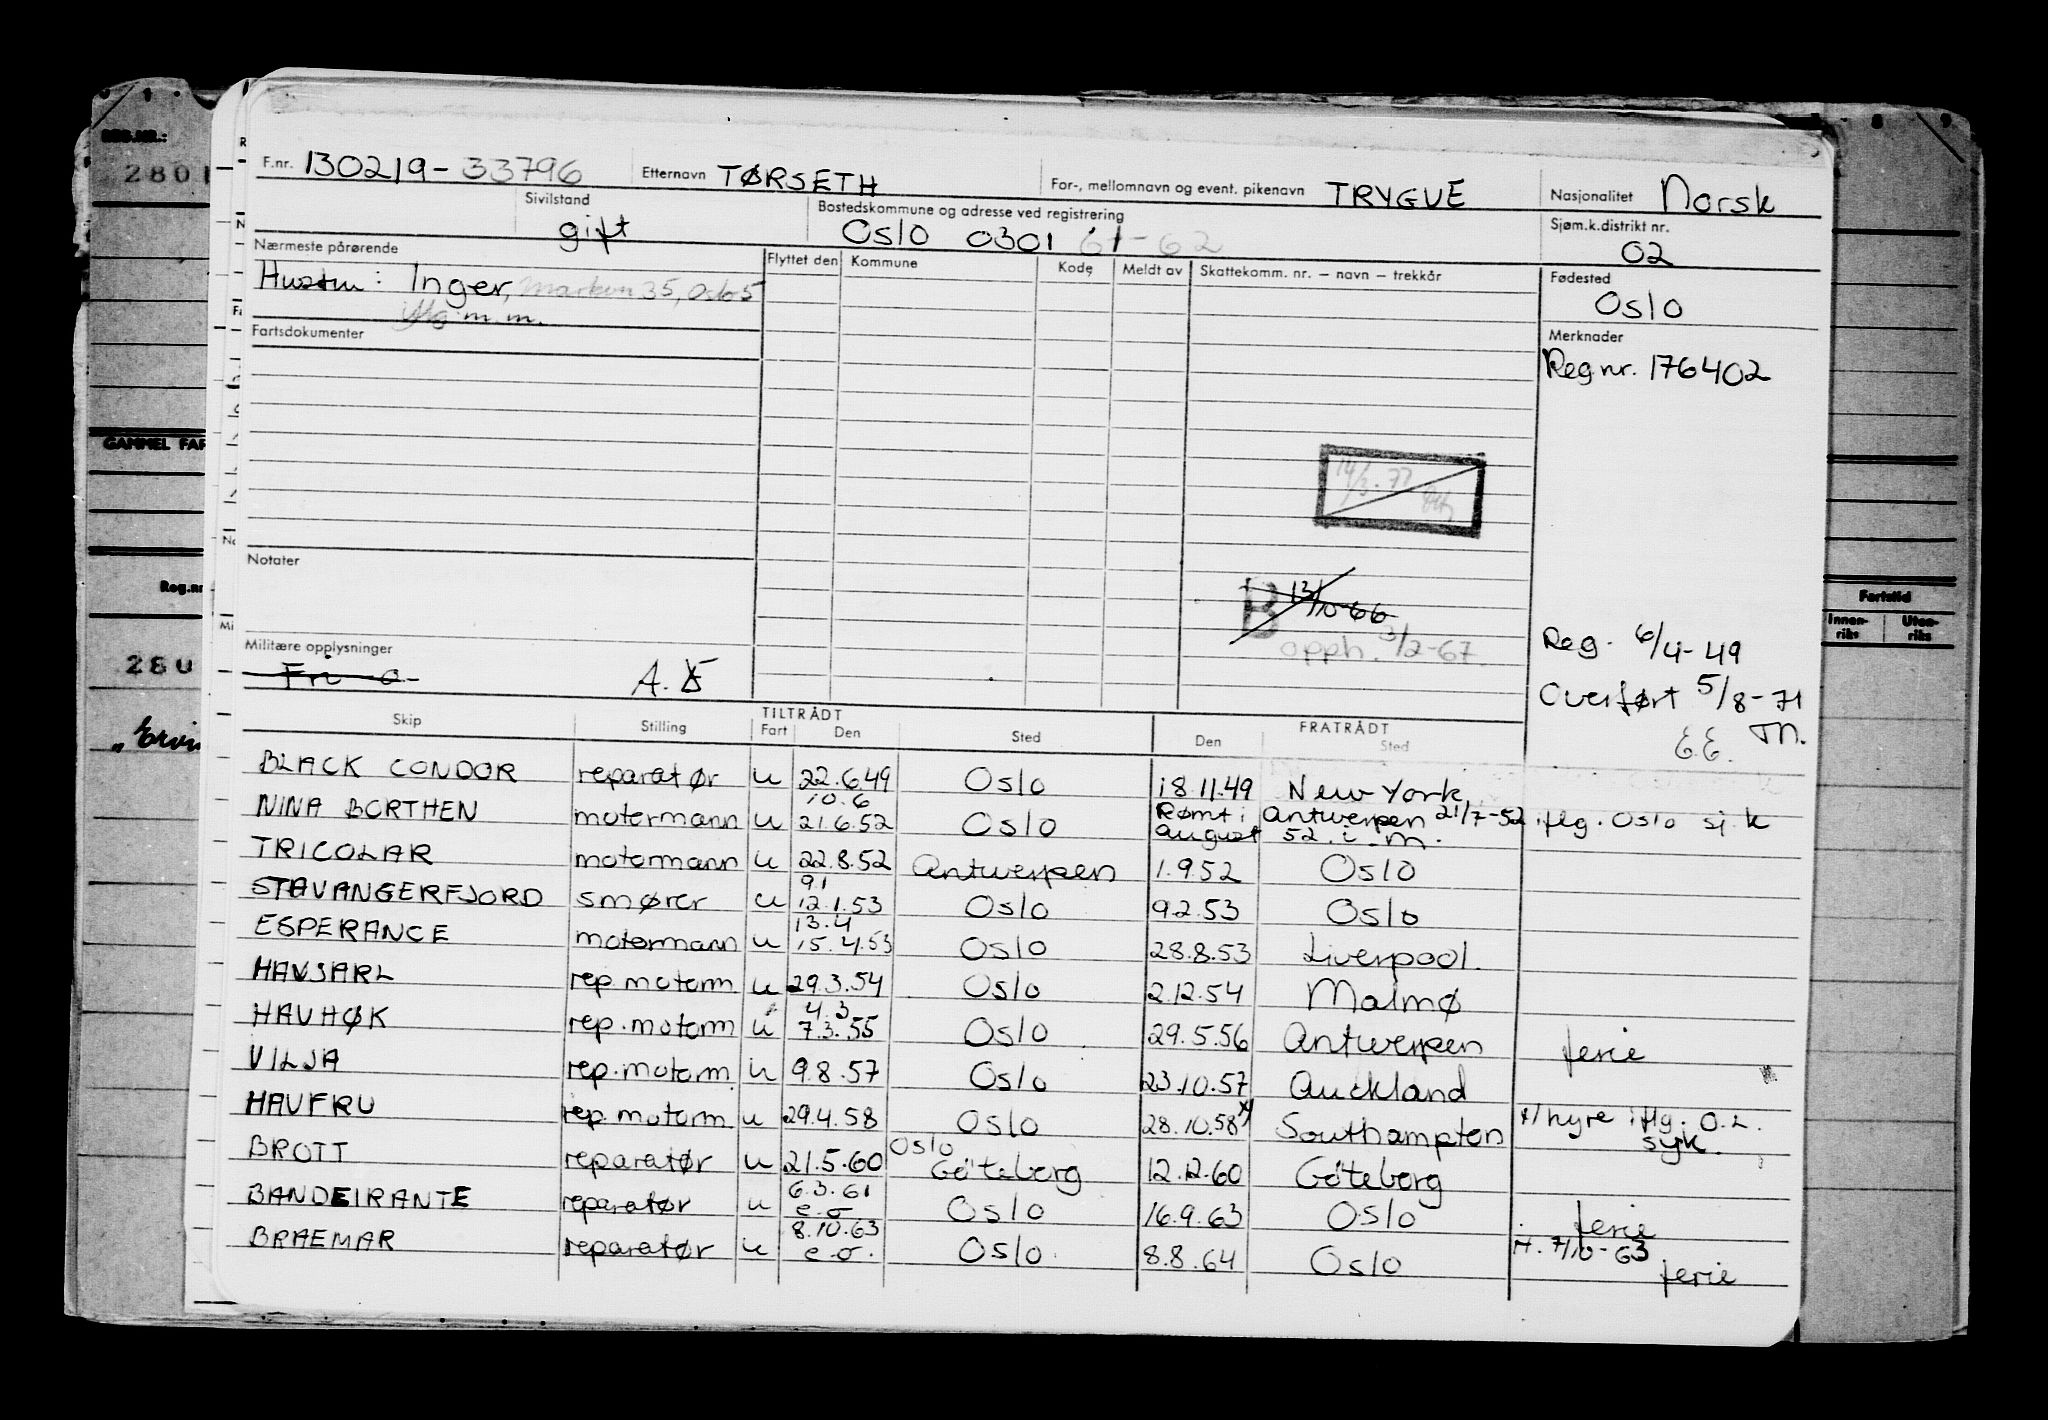 REG.NR.:
2801
GAMMEL FAR
Reg.nr
280
„Ervi
F.nr. 130219-33796 Etternavn TØRSETH For-, mellomnavn og event. pikenavn TRYGVE Nasjonalitet Norsk
Sivilstand gift Bostedskommune og adresse ved registrering Oslo 0301 61-62 Sjøm.k.distrikt nr. 02
Nærmeste pårørende Flyttet den Kommune Kode Meldt av Skattekomm. nr. – navn – trekkår Fødested
Hustru: Inger, Marken 35, Oslo 5 Oslo
m.m.
Fartsdokumenter Merknader
Reg.nr. 176402
14/3.77
Notater
B 13/10-66
opph. 3/2-67.
Reg. 6/4-49
Militære opplysninger
Fri
Overført 5/8-71
E.E. M.
TILTRÅDT FRATRÅDT
Skip Stilling Fart Den Sted Den Sted
BLACK CONDOR reparatør u 22.6.49 Oslo 18.11.49 New York
NINA BORTHEN motormann u 10.6 21.6.52 Oslo Rømt i Antwerpen 21/7-52 iflg. Oslo sj.k
august 52. i. M.
TRICOLAR motormann u 22.8.52 Antwerpen 1.9.52 Oslo
STAVANGERFJORD smører u 9.1 12.1.53 Oslo 9.2.53 Oslo
ESPERANCE motormann u 13.4 15.4.53 Oslo 28.8.53 Liverpool.
HAVJARL rep. motorm u 29.3.54 Oslo 2.12.54 Malmø
HAVHØK rep. motorm u 4.3 7.3.55 Oslo 29.5.56 Antwerpen ferie
VILJA rep. motorm. u 9.8.57 Oslo 23.10.57 Auckland
HAVFRU rep. motorm u 29.4.58 Oslo 28.10.58 x) Southampten x/ hyre iflg. O.L.
syk.
BROTT reparatør u 21.5.60 Oslo Göteborg 12.12.60 Göteborg
BANDEIRANTE reparatør u 6.3.61 e.o Oslo 16.9.63 Oslo ferie
BRAEMAR reparatør u 8.10.63 e.o. Oslo 8.8.64 Oslo 7/10-63 ferie
Fartstid
Innen-riks Uten-riks